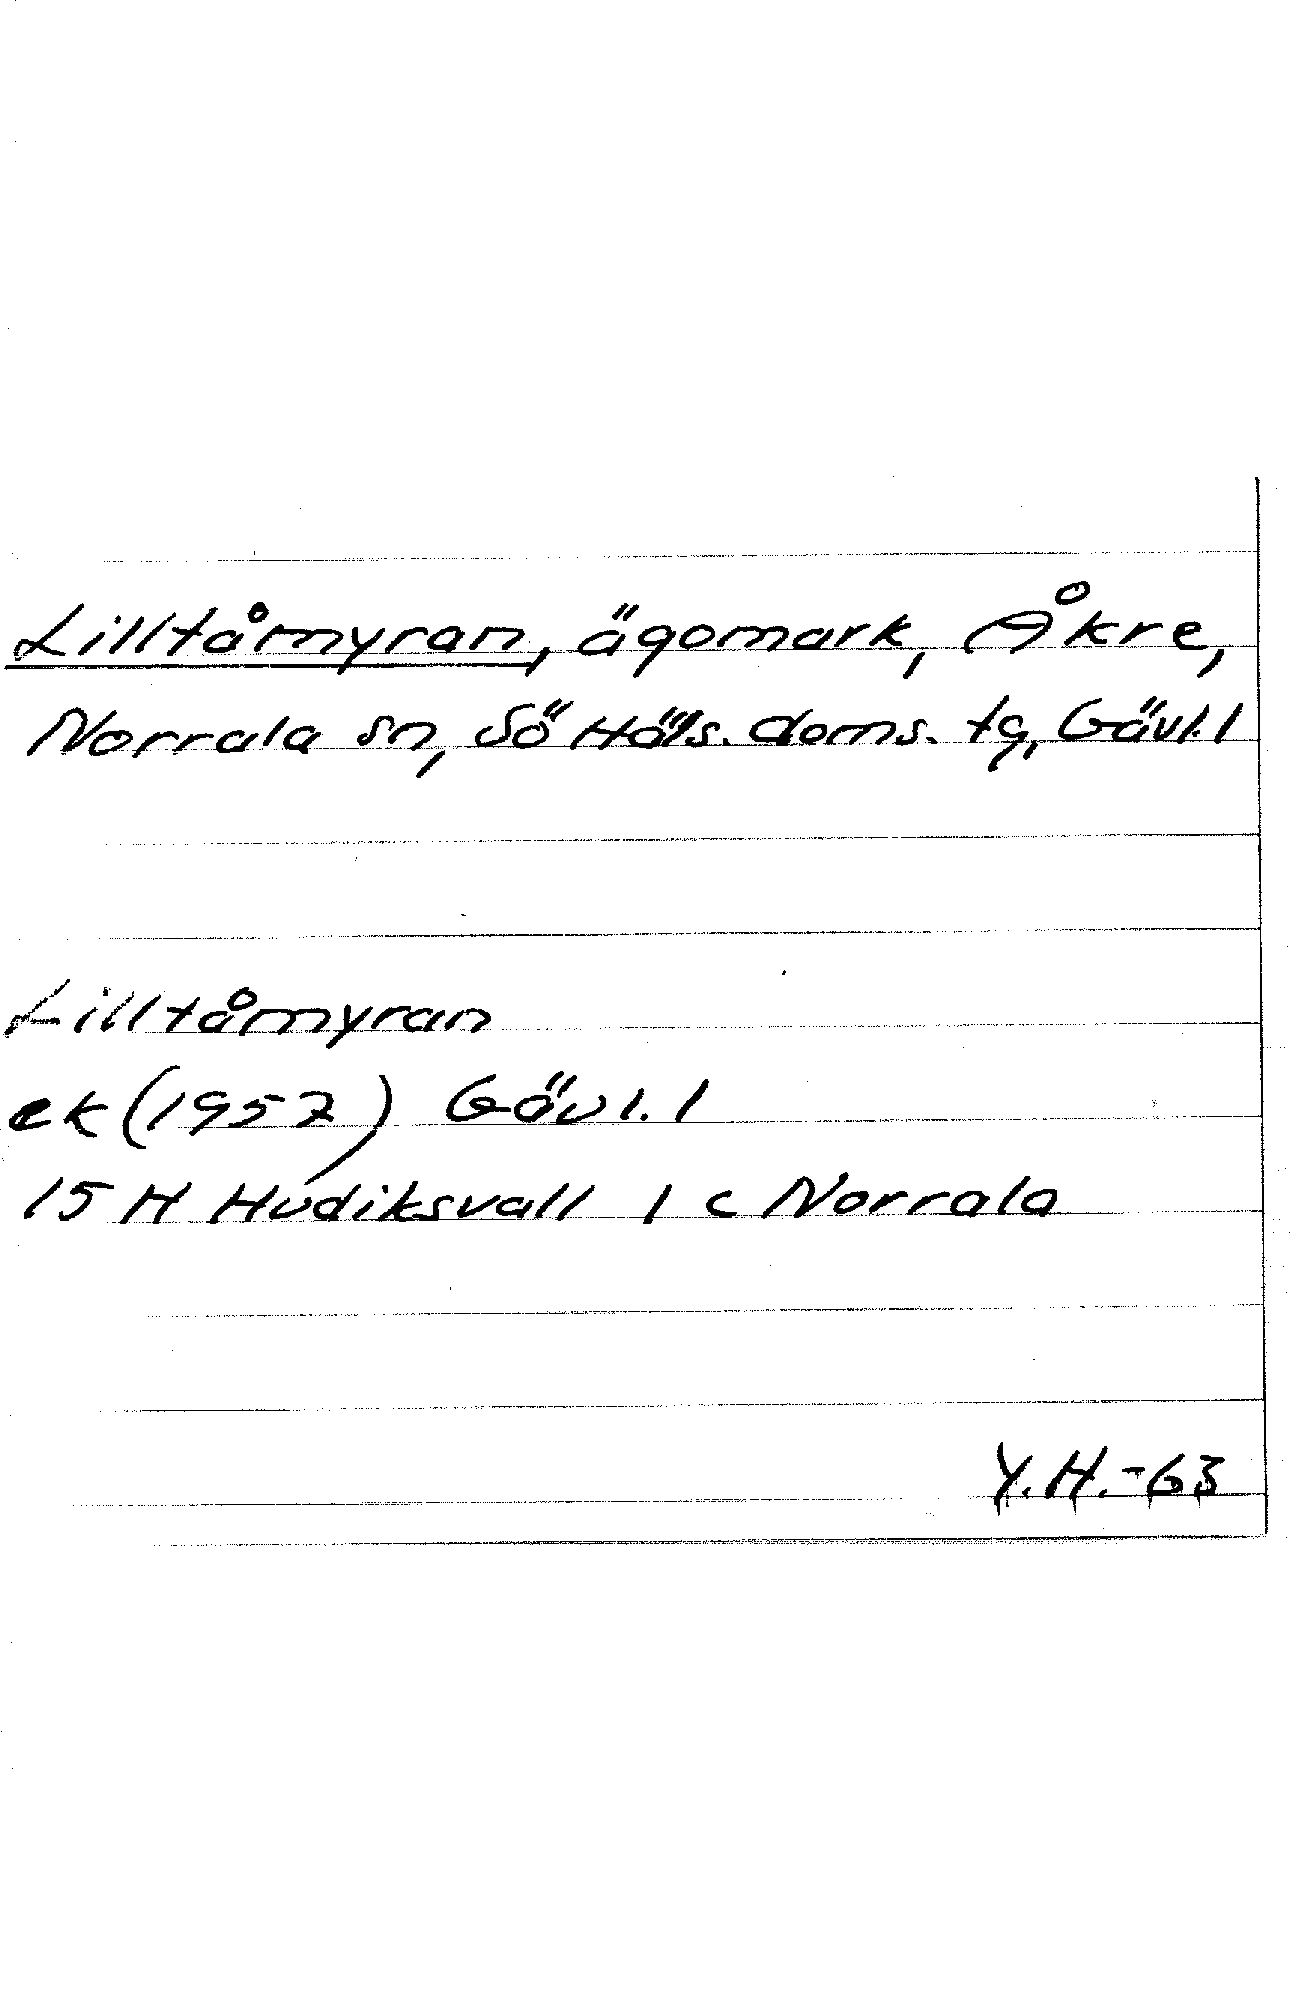 Lilltåmyran, ägomark, Åkre,
Norrala sn, Sö Häls. doms. tg, Gävl. l
Lilltåmyran
ek (1957) Gävl. l
15 H Hudiksvall 1 c Norrala
Y.H.-63